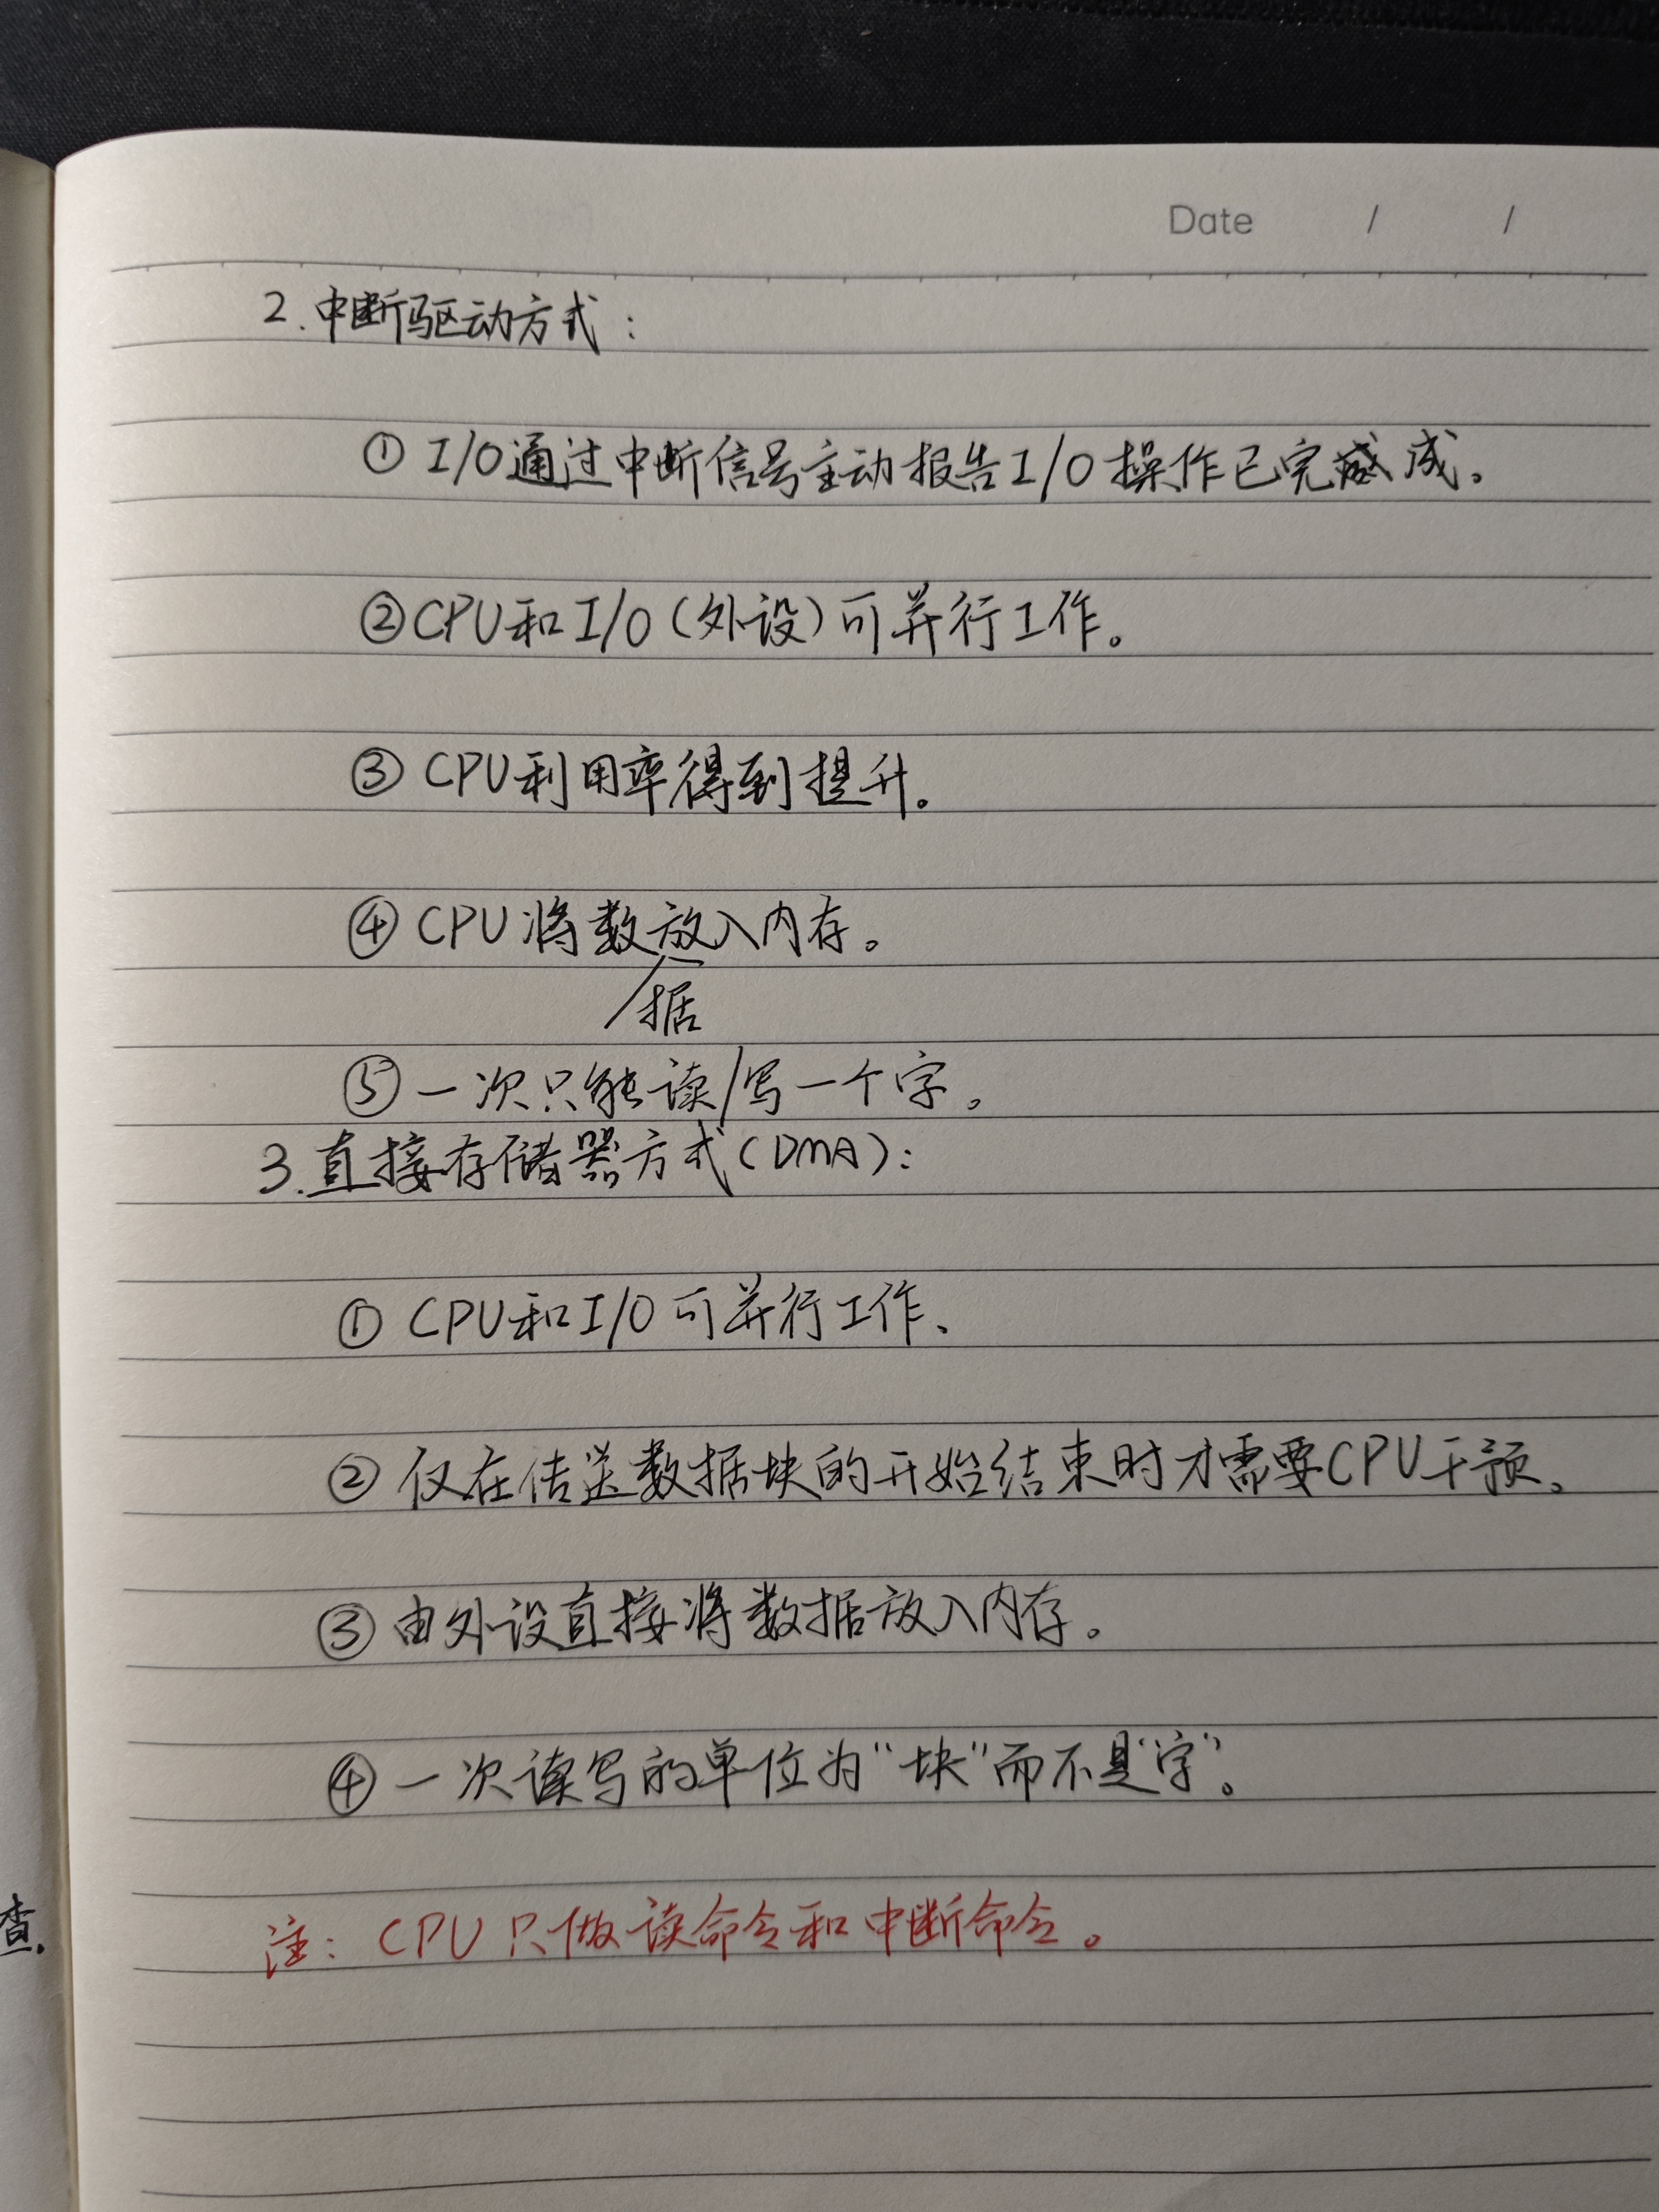 Date / /
2.中断驱动方式:
① I/O通过中断信号主动报告I/O操作已完成。
②CPU和I/O(外设)可并行工作。
③ CPU利用率得到提升。
④ CPU将数据放入内存。
⑤一次只能读/写一个字。
3.直接存储器方式(DMA):
① CPU和I/O可并行工作、
② 仅在传送数据块的开始结束时才需要CPU干预。
③ 由外设直接将数据放入内存。
④一次读写的单位为“块”而不是“字”。
查.
注: CPU只做读命令和中断命令。